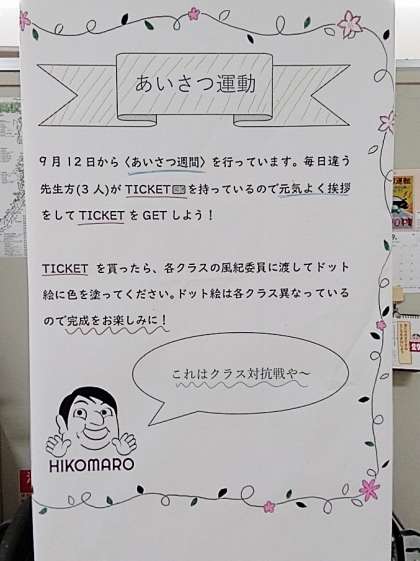 あいさつ運動
9月12日から〈あいさつ週間〉を行っています。毎日違う
先生方(3人)が TICKET🎫を持っているので元気よく挨拶
をして TICKET を GET しよう！
TICKET を貰ったら、各クラスの風紀委員に渡してドット
絵に色を塗ってください。ドット絵は各クラス異なっている
ので完成をお楽しみに！
これはクラス対抗戦や～
HIKOMARO